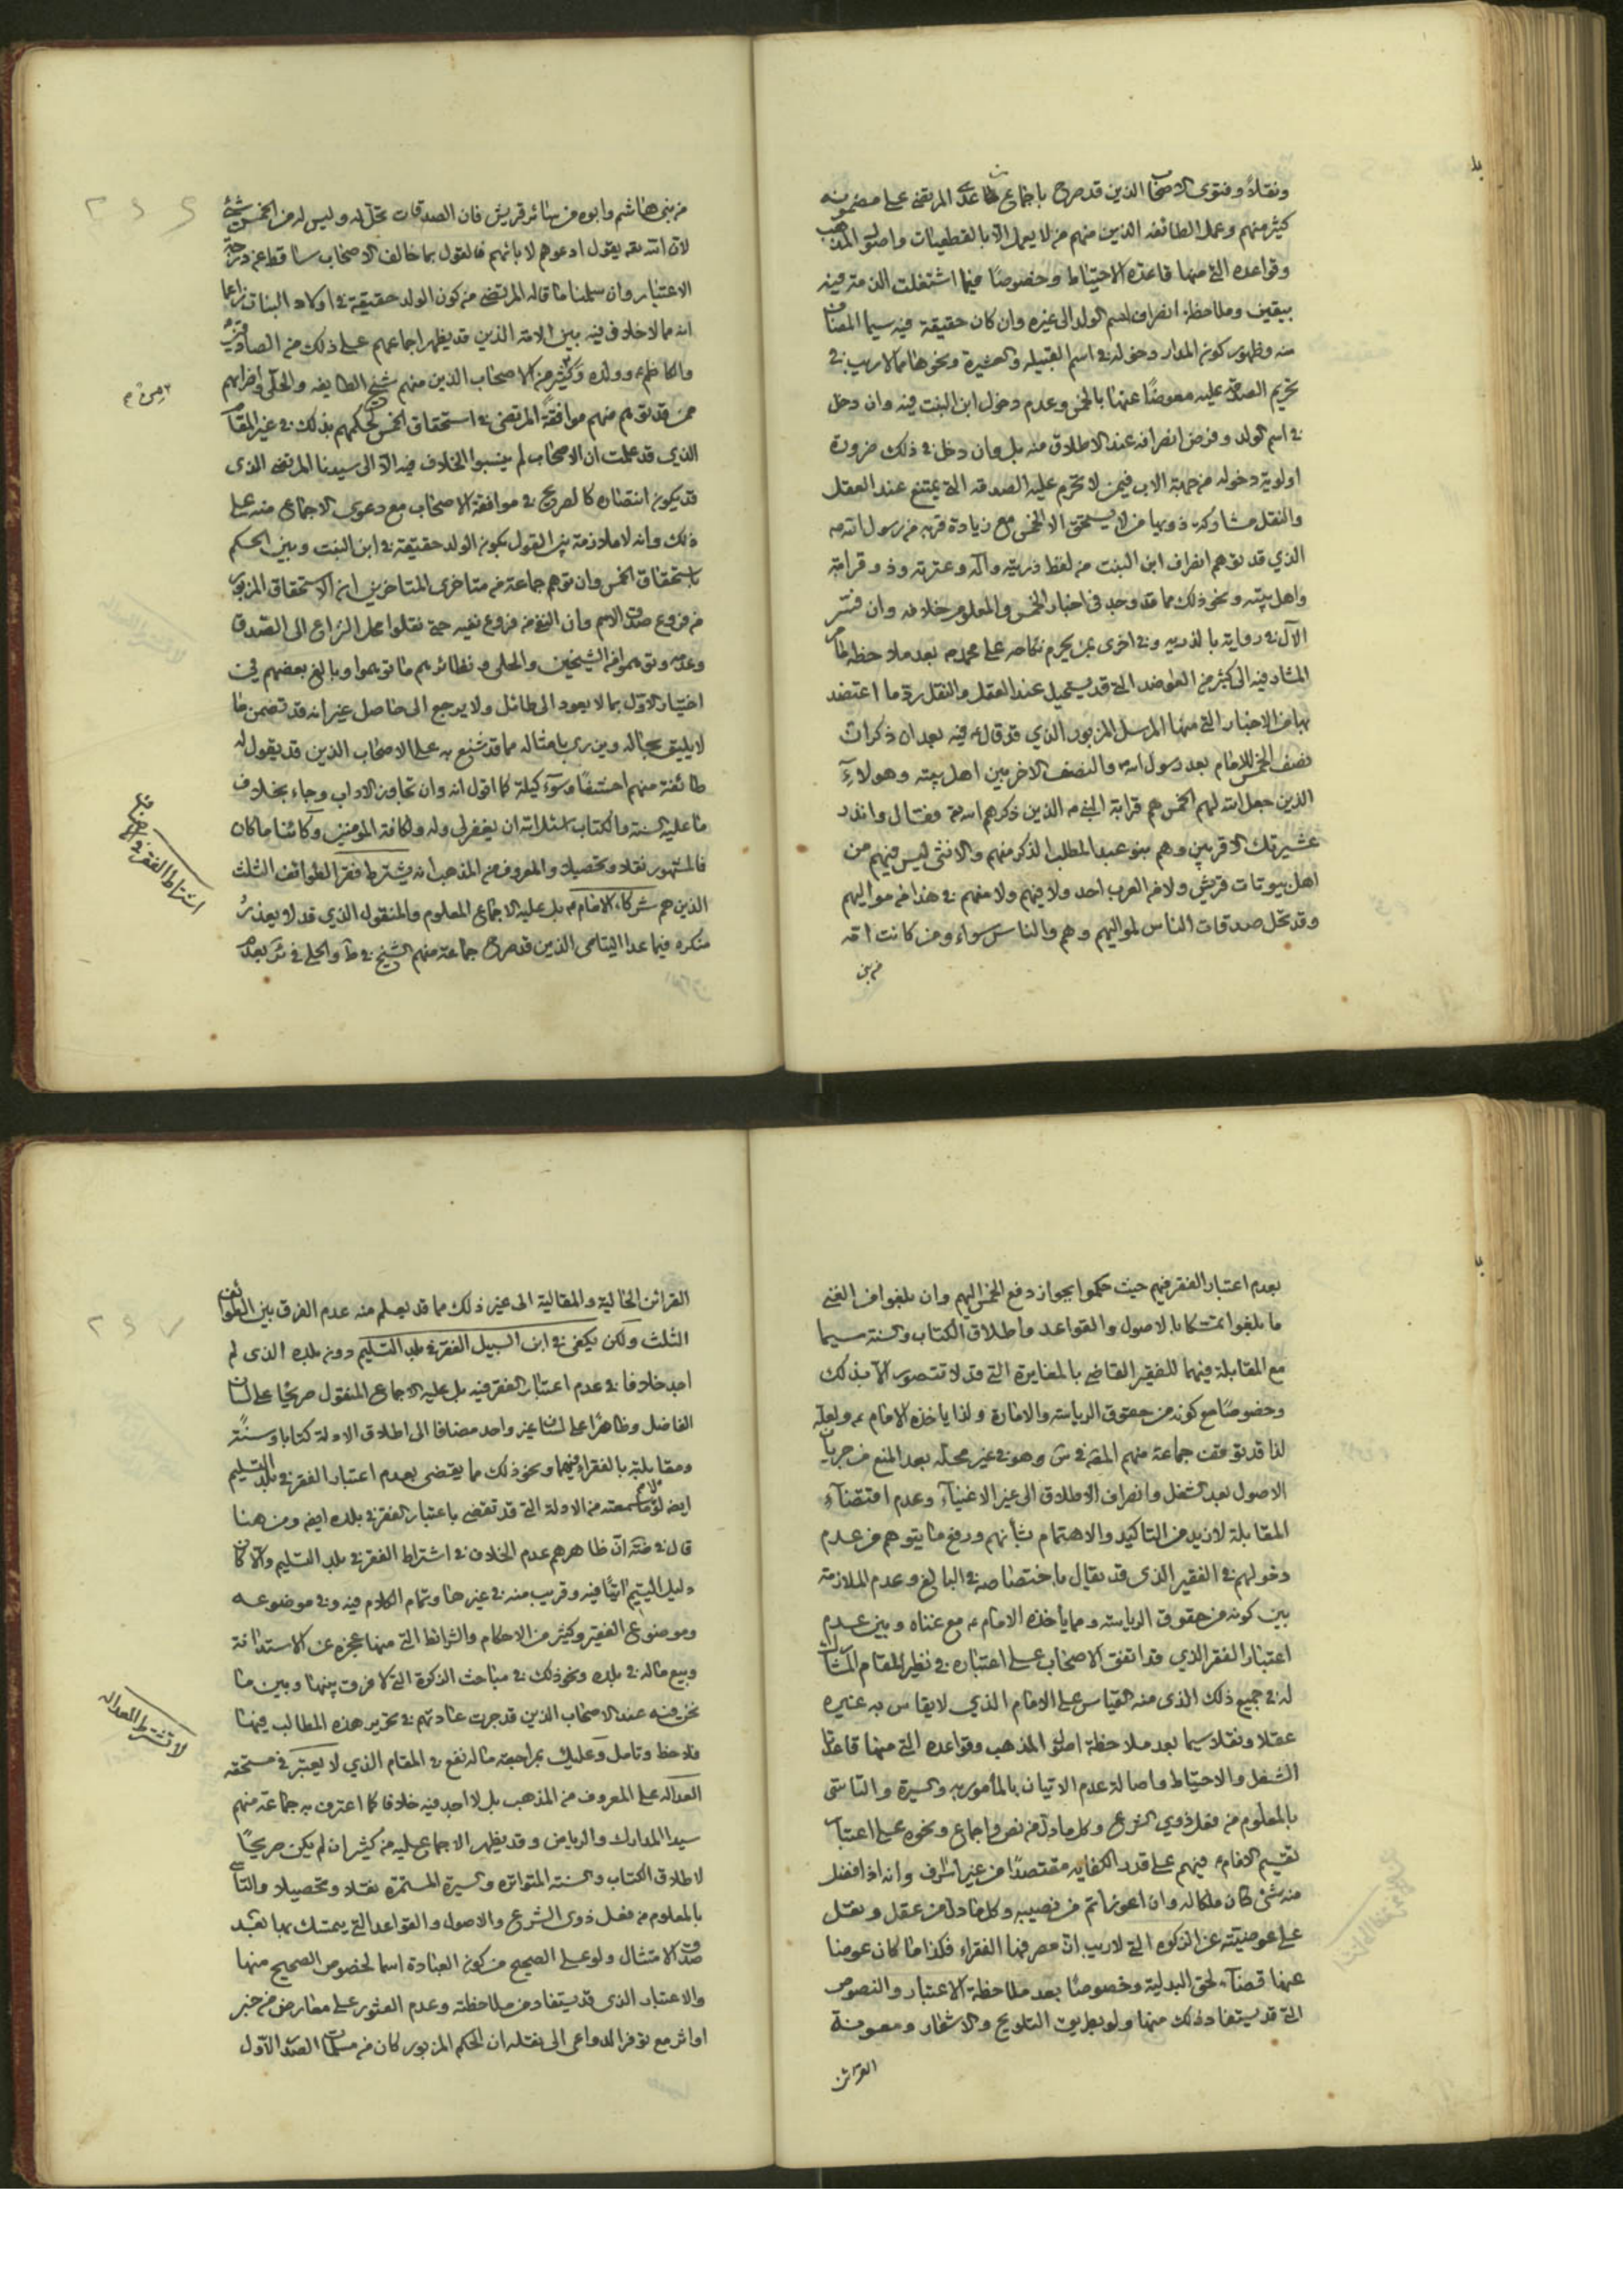 ونقلاً وفتوى الاصحاب الذين قد صرح باجماع ما عدا المرتضى على مضمونه
كثير منهم وعمل الطائفه الذين منهم من لا يعمل الا بالقطعيات واصول المذهب
وقواعده التي منها قاعدة الاحتياط وخصوصًا فيما اشتغلت الذمة فيه
بيقين وملاحظة انصراف اسم الولد الى غيره وان كان حقيقة فيه سيما المضاف
منه وظهور كون المدار دخوله في اسم القبيله والعشيرة ونحوها مما لا ريب في
تحريم الصدقة عليه معوضًا عنها بالخمس وعدم دخول ابن البنت فيه وان دخل
في اسم الولد وفرض انصرافه عند الاطلاق منه بل وان دخل في ذلك ضرورة
اولوية دخوله من جهة الاب فيمن لا تحرم عليه الصدقه التي يمتنع عند العقل
والنقل مشاركة ذويها من لا يستحق الا الخمس مع زيادة قربه من رسول الله ص
الذي قد توهم انصراف ابن البنت من لفظ ذريته وآله وعترته وذو قرابة
واهل بيته ونحو ذلك مما قد وجد في اخبار الخمس والمعلوم خلافه وان فسر
الآل في رواية بالذريه وفي اخرى بمن يحرم نكاحه على محمد ص بعد ملاحظة ما
المشار فيه الى كثير من العواضد التي قد يستحيل عند العقل والنقل ردّ ما اعتضد
بها من الاخبار التي منها المرسل المزبور الذي قد قال ع فيه بعد ان ذكر ان
نصف الخمس للامام بعد رسول الله ص والنصف الاخر بين اهل بيته وهولاءِ
الذين جعل الله لهم الخمس هم قرابة النبي ص الذين ذكرهم الله تع فقال وانذر
عشيرتك الاقربين وهم بنو عبد المطلب الذكر منهم والانثى ليس فيهم من
اهل بيوتات قريش ولا من العرب احد ولا فيهم ولا منهم في هذا من مواليهم
وقد تحل صدقات الناس لمواليهم وهم والناس سواء ومن كانت امه
من بني
من بني هاشم وابوه من سائر قريش فان الصدقات تحل له وليس له من الخمس شيئ
لان الله تعه يقول ادعوهم لابائهم فالقول بما خالف الاصحاب ساقط عن درجة
الاعتبار وان سلمنا ما قاله المرتضى من كون الولد حقيقة في اولاد البنات زاعما
انه مما لا خلاف فيه بين الامة الذين قد يظهر اجماعهم على ذلك من الصادقين
والكاظم ع وولده وكثير من الاصحاب الذين منهم شيخ الطايفه والحلى واضرابهم
ممن قد توهم منهم موافقة المرتضى في استحقاق الخمس لحكمهم بذلك في غير المقام
الذي قد علمت ان الاصحاب لم ينسبوا الخلاف فيه الا الى سيدنا المرتضى الذى
قد يكون انتصاره كالصريح في موافقة الاصحاب مع دعوى الاجماع منه على
ذلك وانه لا ملازمة بين القول بكون الولد حقيقة في ابن البنت وبين الحكم
باستحقاق الخمس وان توهم جماعة من متاخرى المتاخرين ان الاستحقاق المزبور
من فروع صدق الاسم وان النفي من فروع نفيه حتى نقلوا محل النزاع الى الصدق
وعدمه وتوهموا في الشيخين والحلى ونظائرهم ما توهموا وبالغ بعضهم في
اختيار الاول بما لا يعود الى طائل ولا يرجع الى حاصل غير انه قد تضمن ما
لا يليق بحاله ويزرى بامثاله مما قد شنع به على الاصحاب الذين قد يقول له
طائفة منهم احشفًا وسوء كيلة كما اقول انه وان تجاوز الاداب وجاء بخلاف
ما عليه السنة والكتاب اسئل الله ان يغفر لي وله ولكافة المؤمنين وكائنا ما كان
فالمشهور نقلا وتحصيلا والمعروف من المذهب انه يشترط فقر الطوائف الثلث
الذين هم شركاء الامام ع بل عليه الاجماع المعلوم والمنقول الذي قد لا يعذر
منكره فيما عدا اليتامى الذين قد صرح جماعة منهم الشيخ في ط والحلي في ئر بعدم
اشتراط الفقر في الاصناف
بعدم اعتبار الفقر فيهم حيث حكموا بجواز دفع الخمس اليهم وان بلغوا من الغنى
ما بلغوا تمسكا بالاصول والقواعد واطلاق الكتاب والسنة سيما
مع المقابلة فيهما للفقير القاضي بالمغايرة التي قد لا تتصور الا بذلك
وخصوصًا مع كونه من حقوق الرياسة والامارة ولذا ياخذه الامام ع ولعله
لذا قد توقفت جماعة منهم المقدس في ش وهو في غير محله بعد المنع من جريان
الاصول بعد الشغل وانصراف الاطلاق الى غير الاغنياء وعدم اقتضاء
المقابلة لازيد من التاكيد والاهتمام بشأنهم ودفع ما يتوهم من عدم
دخولهم في الفقير الذى قد يقال باختصاصه في البالغ وعدم الملازمة
بين كونه من حقوق الرياسه ومما يأخذه الامام ع مع غناه وبين عدم
اعتبار الفقر الذي قد اتفق الاصحاب على اعتباره في نظير المقام المشارك
له في جميع ذلك الذى منه القياس على الامام الذي لا يقاس به غيره
عقلا ونقلا سيما بعد ملاحظة اصول المذهب وقواعده التي منها قاعدتا
الشغل والاحتياط واصالة عدم الاتيان بالمأمور به والسيرة والتاسّى
بالمعلوم من فعل ذوي الشرع وكل ما دل من نص واجماع ونحوه على اعتبار
تقسيم الامام ع فيهم على قدر الكفايه مقتصدًا من غير اسراف وانه اذا فضل
منه شئ كان ملكا له وان اعوز اتم من نصيبه وكل ما دل من عقل ونقل
على عوضيته عن الزكوه التي لا ريب ان مصرفها الفقراء فكذا ما كان عوضا
عنها قضآء لحق البدلية وخصوصًا بعد ملاحظة الاعتبار والنصوص
التي قد يستفاد ذلك منها ولو بطريق التلويح والاشعار ومعونة
القرائن
القرائن الحالية والمقالية الى غير ذلك مما قد يعلم منه عدم الفرق بين الطوائف
الثلث ولكن يكفى في ابن السبيل الفقر في بلد التسليم دون بلده الذى لم
اجد خلافا في عدم اعتبار الفقر فيه بل عليه الاجماع المنقول صريحًا على لسان
الفاضل وظاهرًا على لسان غير واحد مضافا الى اطلاق الادلة كتابا وسنةً
ومقابلته بالفقراء فيهما ونحو ذلك مما يقتضى بعدم اعتبار الفقر في بلد التسليم
ايضه لولا ما سمعته من الادلة التي قد تقضى باعتبار الفقر في بلده ايضه ومن هنا
قال في ان ظاهرهم عدم الخلاف في اشتراط الفقر في بلد التسليم والا كان
دليل اليتيم اتيًا فيه وقريب منه في غيرها وتمام الكلام فيه وفي موضوعه
وموضوع الفقير وكثير من الاحكام والشرائط التي منها عجزه عن الاستدانة
وبيع ماله في بلده ونحو ذلك في مباحث الزكوة التي لا فرق بينها وبين ما
نحن فيه عند الاصحاب الذين قد جرت عادتهم في تحرير هذه المطالب فيها
فلاحظ وتامل وعليك بمراجعة ماله نفع في المقام الذي لا يعتبر في مستحقه
العداله على المعروف من المذهب بل لا اجد فيه خلافا كما اعترف به جماعة منهم
سيد المدارك والرياض وقد يظهر الاجماع عليه من كثير ان لم يكن صريحًا
لاطلاق الكتاب والسنة المتواتره والسيرة المستمرة نقلا وتحصيلا والتاسي
بالمعلوم من فعل ذوى الشرع والاصول والقواعد التي يتمسك بها بعد
صدق الامتثال ولو على الصحيح من كون العبادة اسما لخصوص الصحيح منها
والاعتبار الذى قد يستفاد من ملاحظته وعدم العثور على معارض من خبر
او اثر مع توفر الدواعى الى نقله ان الحكم المزبور كان من مسلمات الصدر الاول
لا تشترط العداله